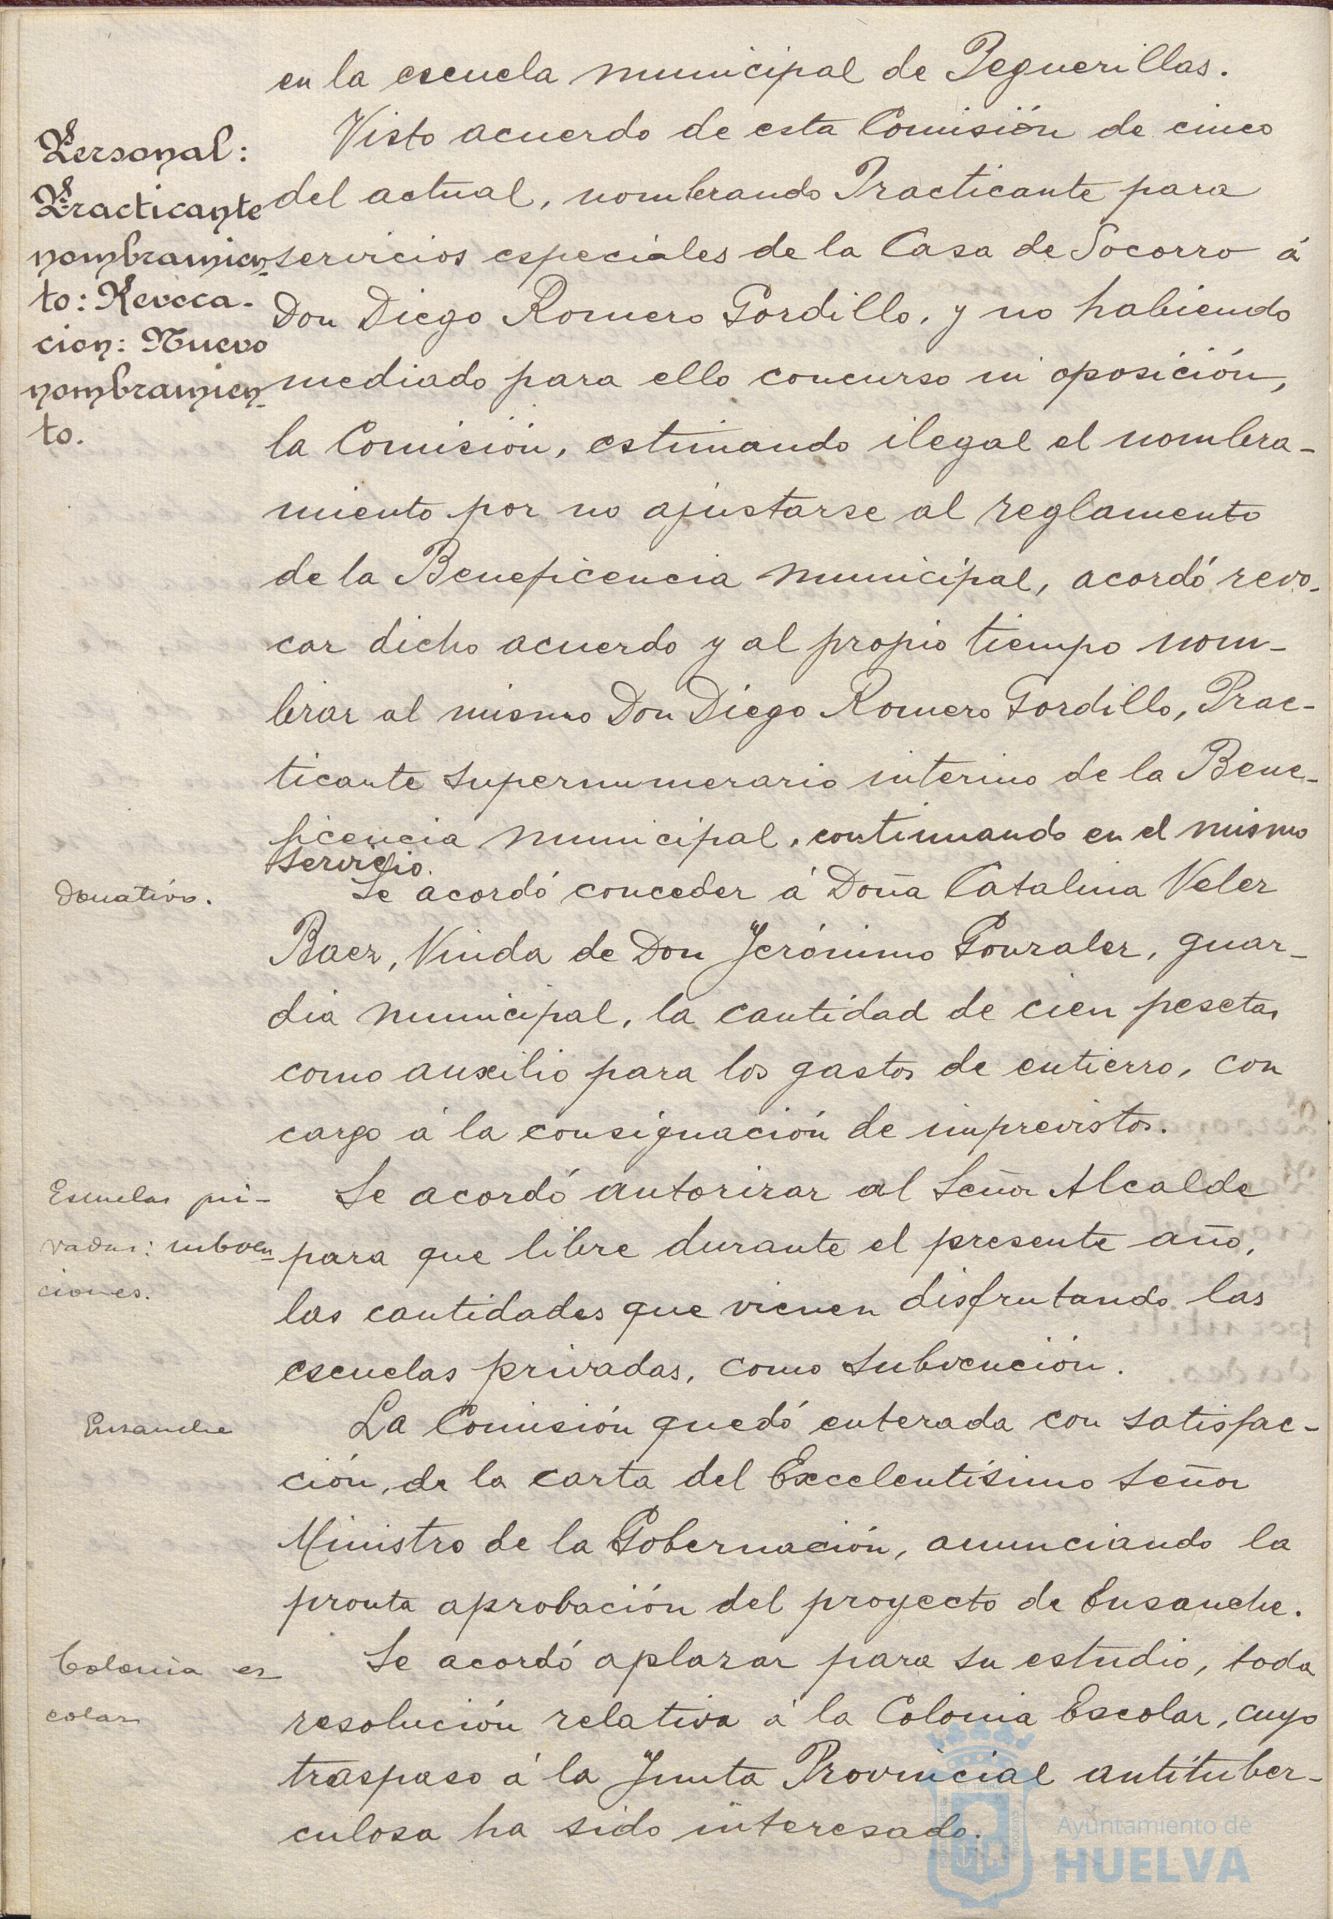 en la escuela municipal de Peguerillas.
Personal:
Practicante
nombramien-
to: Revoca-
cion: Nuevo
nombramien-
to.
Visto acuerdo de esta Comisión de cinco
del actual, nombrando Practicante para
servicios especiales de la Casa de Socorro á
Don Diego Romero Gordillo, y no habiendo
mediado para ello concurso ni oposición,
la Comisión, estimando ilegal el nombra-
miento por no ajustarse al reglamento
de la Beneficencia municipal, acordó revo-
car dicho acuerdo y al propio tiempo nom-
brar al mismo Don Diego Romero Gordillo, Prac-
ticante supernumerario interino de la Bene-
ficencia municipal, continuando en el mismo
servicio.
Donativo.
Se acordó conceder á Doña Catalina Velez
Baez, Viuda de Don Jerónimo Gonzalez, guar-
dia municipal, la cantidad de cien pesetas
como auxilio para los gastos de entierro, con
cargo á la consignación de imprevistos.
Escuelas pri-
vadas: subven-
ciones.
Se acordó autorizar al Señor Alcalde
para que libre durante el presente año,
las cantidades que vienen disfrutando las
escuelas privadas, como subvención.
Ensanche
La Comisión quedó enterada con satisfac-
ción, de la carta del Excelentísimo Señor
Ministro de la Gobernación, anunciando la
pronta aprobación del proyecto de Ensanche.
Colonia es
colar
Se acordó aplazar para su estudio, toda
resolución relativa á la Colonia Escolar, cuyo
traspaso á la Junta Provincial antituber-
culosa ha sido interesado.
Ayuntamiento de
HUELVA